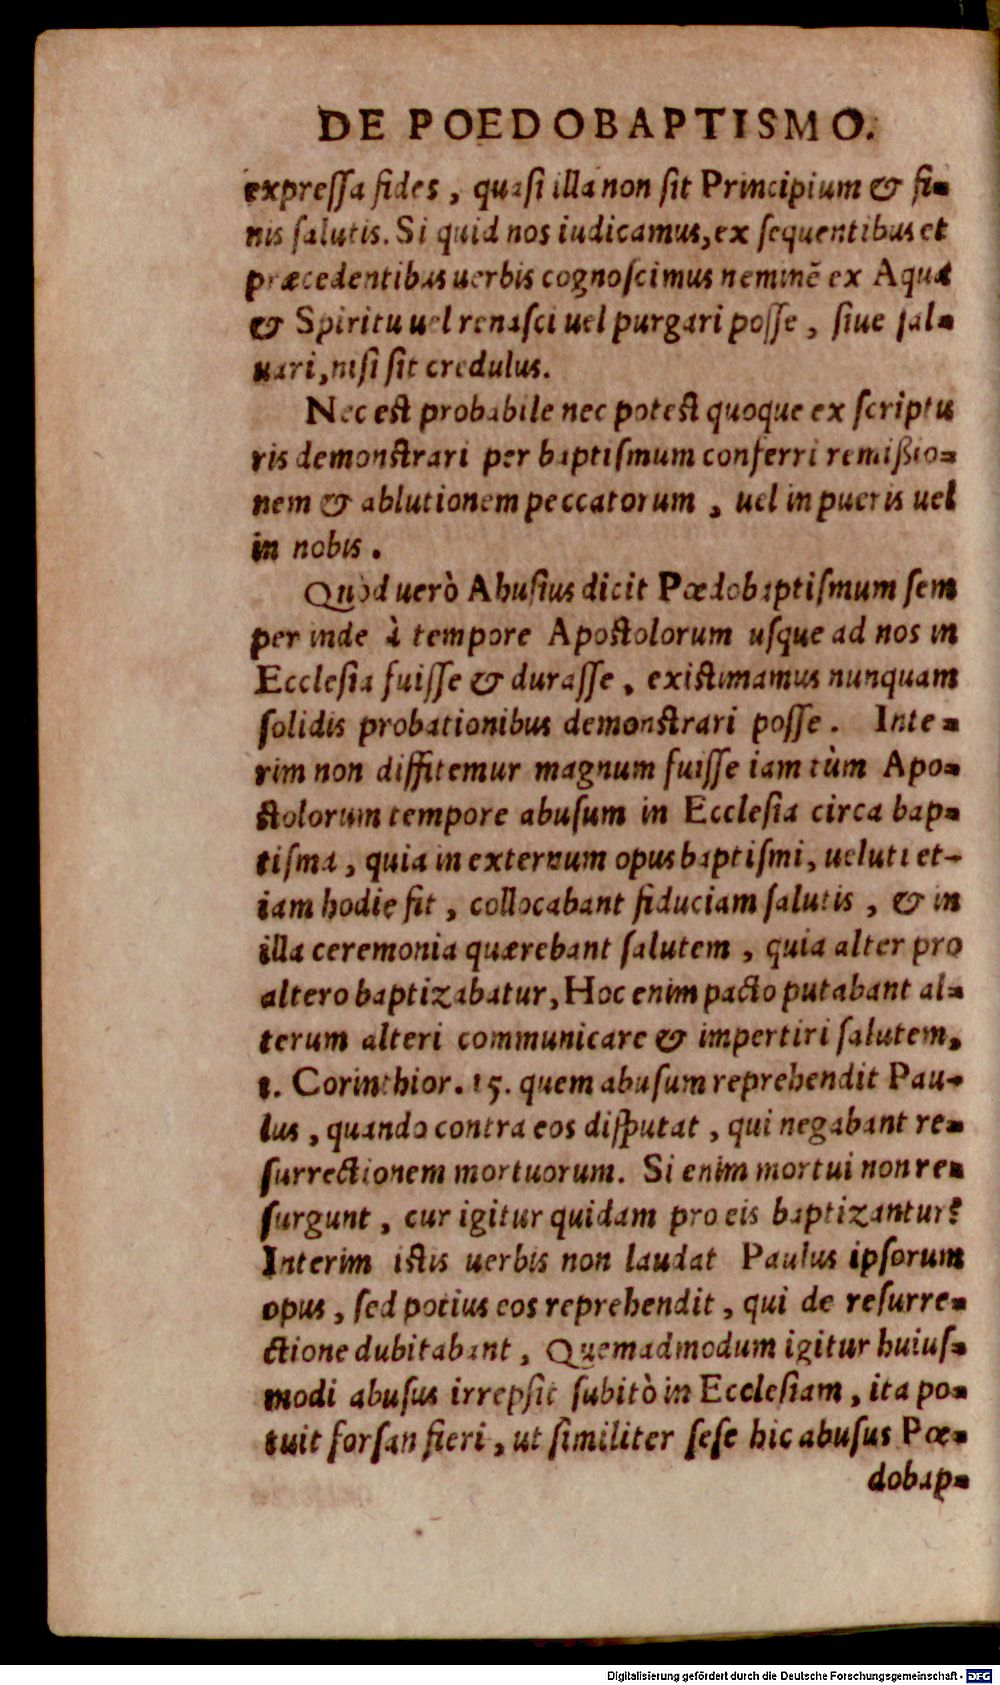 DE POEDOBAPTISMO.
expreſſa fides, quaſi illa non ſit Principium & fi-
nis ſalutis. Si quid nos iudicamus, ex ſequentibus et
præcedentibus uerbis cognoſcimus neminē ex Aqua
& Spiritu uel renaſci uel purgari poſſe, ſiue ſal-
uari, niſi ſit credulus.
Nec eſt probabile nec poteſt quoque ex ſcriptu
ris demonſtrari per baptiſmum conferri remißio-
nem & ablutionem peccatorum, uel in pueris uel
in nobis.
Quòd uerò Abuſius dicit Pœdobaptiſmum ſem
per inde à tempore Apoſtolorum uſque ad nos in
Eccleſia fuiſſe & duraſſe, exiſtimamus nunquam
ſolidis probationibus demonſtrari poſſe. Inte-
rim non diffitemur magnum fuiſſe iam tùm Apo-
ſtolorum tempore abuſum in Eccleſia circa bap-
tiſma, quia in externum opus baptiſmi, ueluti et-
iam hodie fit, collocabant fiduciam ſalutis, & in
illa ceremonia quærebant ſalutem, quia alter pro
altero baptizabatur, Hoc enim pacto putabant al-
terum alteri communicare & impertiri ſalutem,
1. Corinthior. 15. quem abuſum reprehendit Pau-
lus, quando contra eos diſputat, qui negabant re-
ſurrectionem mortuorum. Si enim mortui non re-
ſurgunt, cur igitur quidam pro eis baptizantur?
Interim iſtis uerbis non laudat Paulus ipſorum
opus, ſed potius eos reprehendit, qui de reſurre-
ctione dubitabant, Quemadmodum igitur huiuſ-
modi abuſus irrepſit ſubitò in Eccleſiam, ita po-
tuit forſan fieri, ut ſimiliter ſeſe hic abuſus Pœ-
dobap-
Digitalisierung gefördert durch die Deutsche Forschungsgemeinschaft - DFG